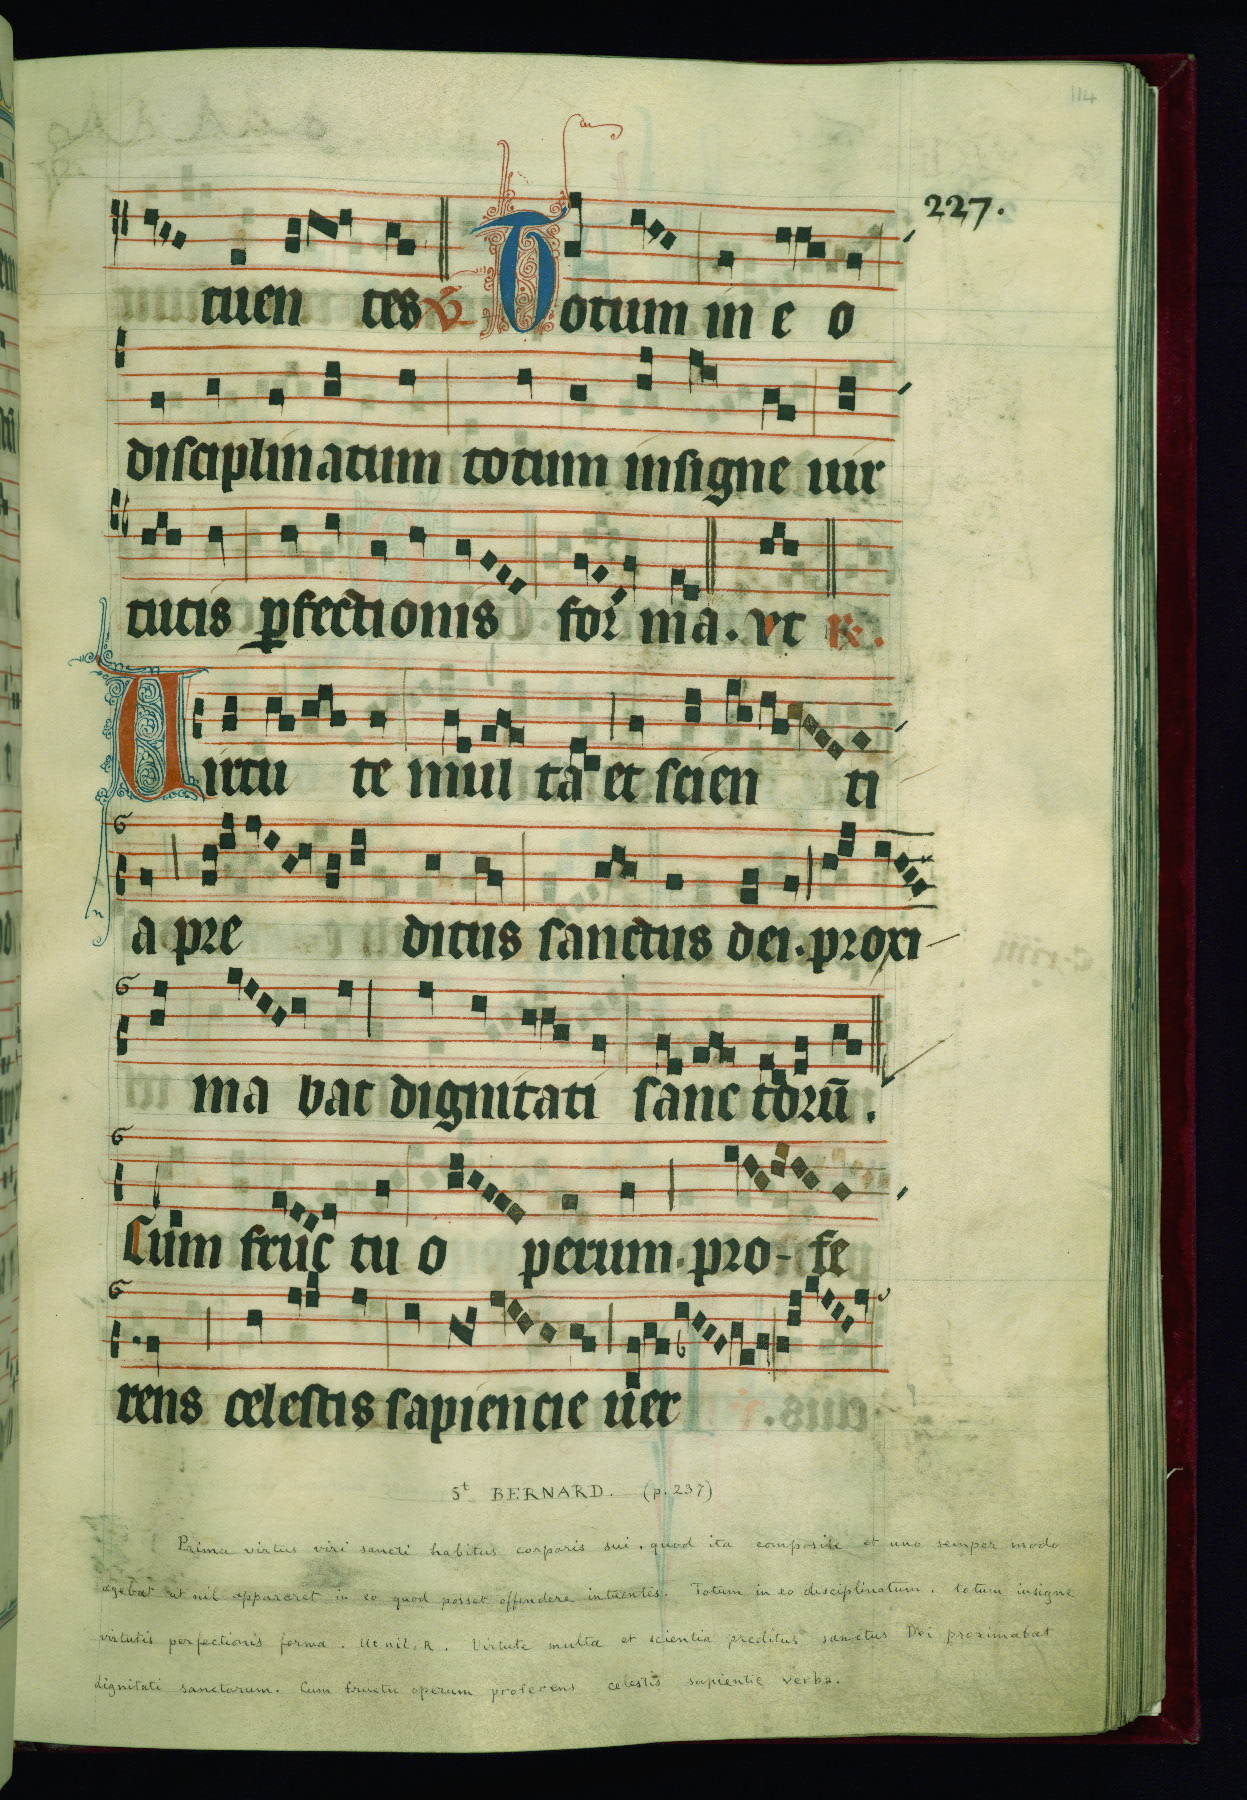 114
227.
tuen tes V̄ Totum in e o
disciplinatum totum insigne uir
tutis ꝑfectionis for ma. vt ℟.
Uirtu te mul ta et scien ti
a pre ditus sanctus dei. proxi
ma bat dignitati sanc torū.
Cum fruc tu o perum. pro- fe
rens celestis sapiencie uer
St BERNARD. (p. 237)
Prima virtus viri sancti habitus corporis sui, quod ita composite et uno semper modo
agebat ut nil appareret in eo quod posset offendere intuentes. Totum in eo disciplinatum. totum insigne
virtutis perfectionis forma. Ut nil. R. Virtute multa et scientia preditus sanctus Dei proximabat
dignitati sanctorum. Cum fructu operum proferens celestis sapientie verba.